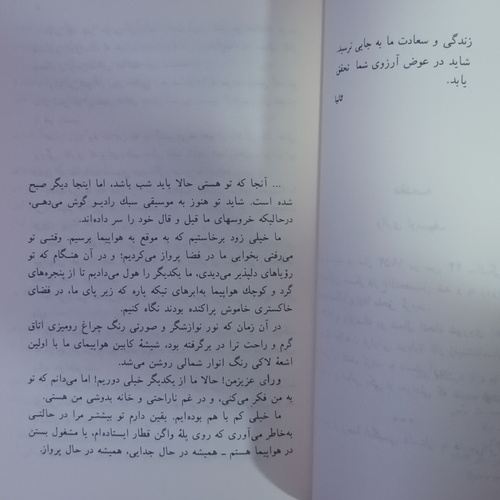 زندگی و سعادت ما به جایی نرسید
شاید در عوض آرزوی شما تحقق
یابد.
... آنجا که تو هستی حالا باید شب باشد، اما اینجا دیگر صبح
شده است. شاید تو هنوز به موسیقی سبك رادیو گوش می‌دهی،
درحالیکه خروسهای ما قیل و قال خود را سر داده‌اند.
ما خیلی زود برخاستیم که به موقع به هواپیما برسیم. وقتی تو
می‌رفتی بخوابی ما در فضا پرواز می‌کردیم؛ و در آن هنگام که تو
رؤیاهای دلپذیر می‌دیدی، ما یکدیگر را هول می‌دادیم تا از پنجره‌های
گرد و کوچك هواپیما به‌ابرهای تیکه پاره که زیر پای ما، در فضای
خاکستری خاموش پراکنده بودند نگاه کنیم.
در آن زمان که نور نوازشگر و صورتی رنگ چراغ رومیزی اتاق
گرم و راحت ترا در برگرفته بود، شیشهٔ کابین هواپیمای ما با اولین
اشعهٔ لاکی رنگ انوار شمالی روشن می‌شد.
ورای عزیزمن! حالا ما از یکدیگر خیلی دوریم! اما می‌دانم که تو
به من فکر می‌کنی، و در غم ناراحتی و خانه بدوشی من هستی.
ما خیلی کم با هم بوده‌ایم. یقین دارم تو بیشتر مرا در حالتی
به‌خاطر می‌آوری که روی پلهٔ واگن قطار ایستاده‌ام، یا مشغول بستن
در هواپیما هستم ـ همیشه در حال جدایی، همیشه در حال پرواز.